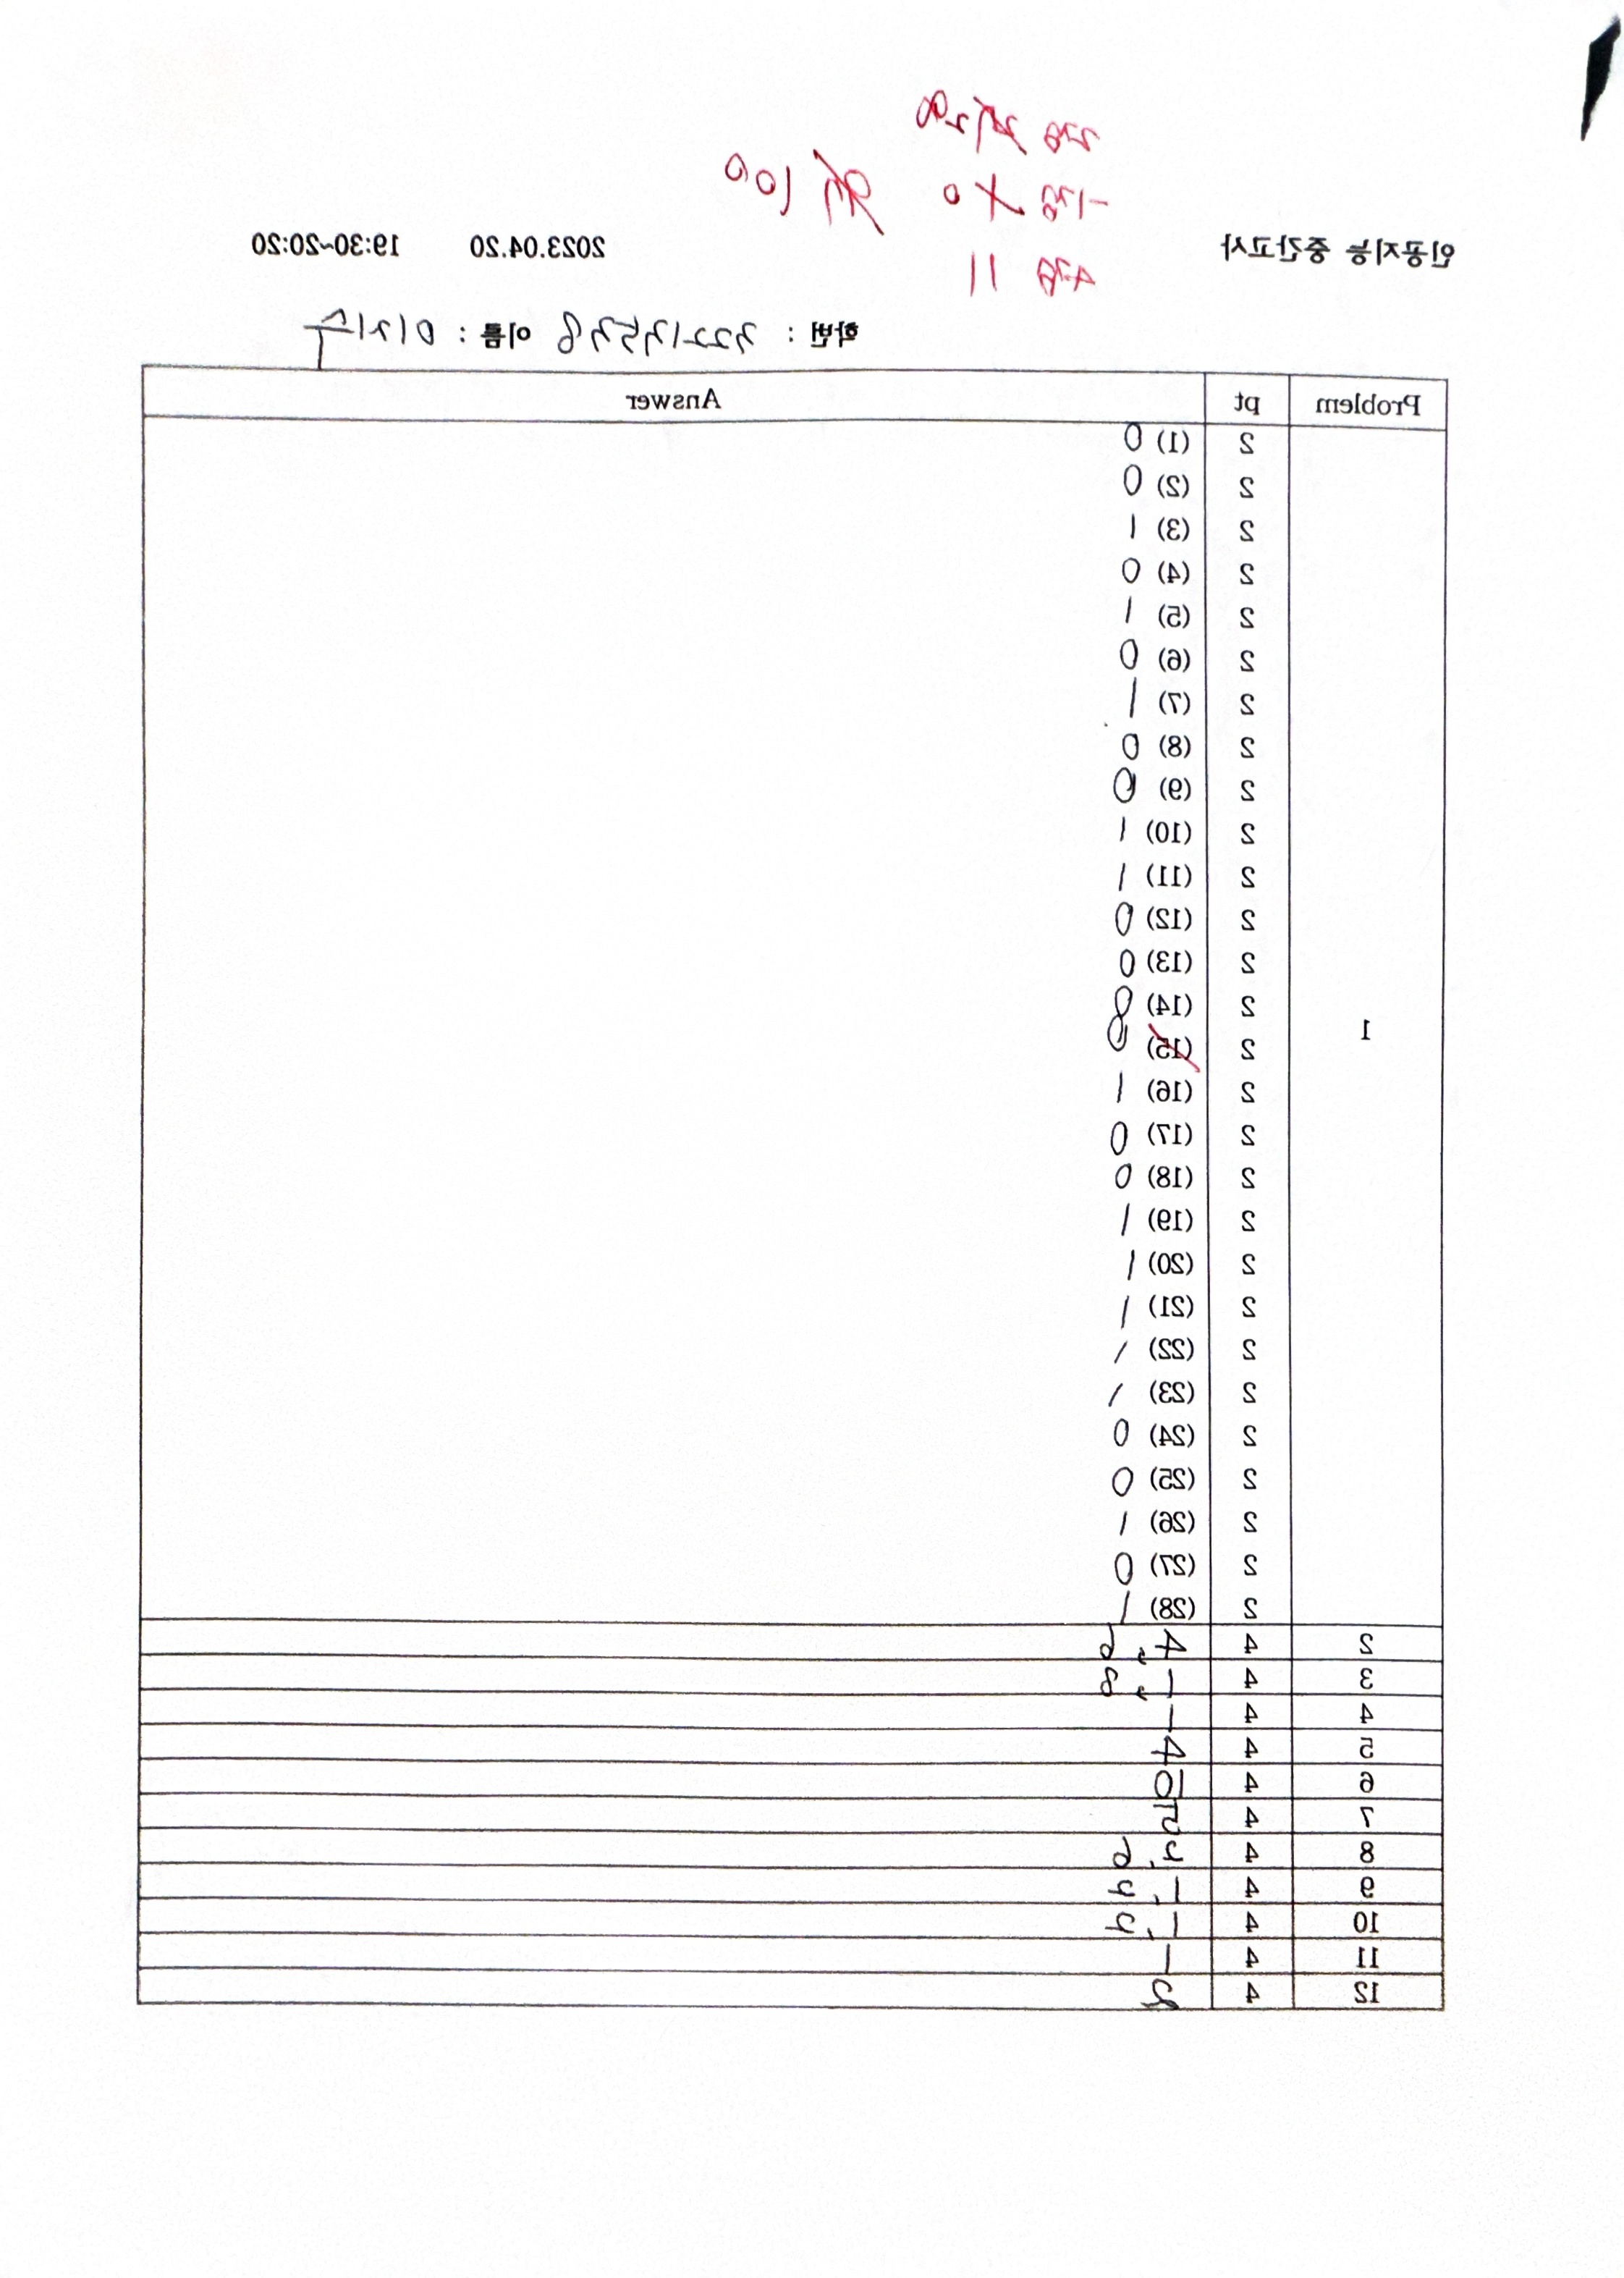 인공지능 중간고사 2023.04.20 19:30~20:20
2점
-1점 0 100
4점 11
학번 : 32213538 이름 : 이지수
Problem pt Answer
1
2 (1) 0
2 (2) 0
2 (3) 1
2 (4) 0
2 (5) 1
2 (6) 0
2 (7) 1
2 (8) 0
2 (9) 0
2 (10) 1
2 (11) 1
2 (12) 0
2 (13) 0
2 (14) 0
2 (15) 0
2 (16) 1
2 (17) 0
2 (18) 0
2 (19) 1
2 (20) 1
2 (21) 1
2 (22) 1
2 (23) 1
2 (24) 0
2 (25) 0
2 (26) 1
2 (27) 0
2 (28) 1
2 4 4, 6
3 4 1, 8
4 4 1
5 4 4
6 4
7 4
8 4
9 4 1,
10 4 1,
11 4 1
12 4